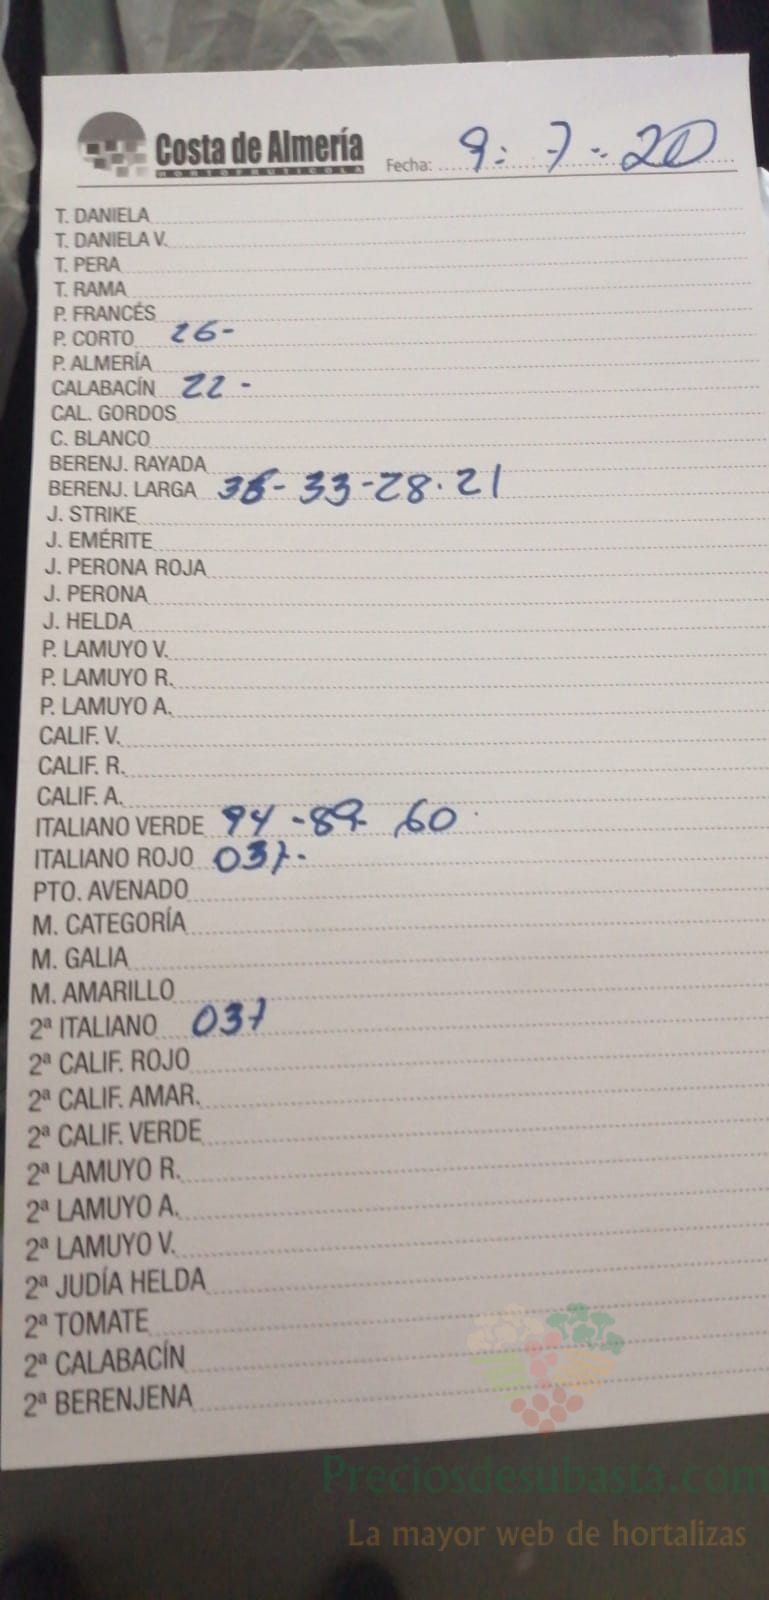 Costa de Almería
HORTOFRUTICOLA
Fecha: 9-7-20
T. DANIELA
T. DANIELA V.
T. PERA
T. RAMA
P. FRANCÉS
P. CORTO 26-
P. ALMERÍA
CALABACÍN 22-
CAL. GORDOS
C. BLANCO
BERENJ. RAYADA
BERENJ. LARGA 36-33-28-21
J. STRIKE
J. EMÉRITE
J. PERONA ROJA
J. PERONA
J. HELDA
P. LAMUYO V.
P. LAMUYO R.
P. LAMUYO A.
CALIF. V.
CALIF. R.
CALIF. A.
ITALIANO VERDE 94-89-60
ITALIANO ROJO 037-
PTO. AVENADO
M. CATEGORÍA
M. GALIA
M. AMARILLO
2ª ITALIANO 037
2ª CALIF. ROJO
2ª CALIF. AMAR.
2ª CALIF. VERDE
2ª LAMUYO R.
2ª LAMUYO A.
2ª LAMUYO V.
2ª JUDÍA HELDA
2ª TOMATE
2ª CALABACÍN
2ª BERENJENA
Preciosdesubasta.com
La mayor web de hortalizas